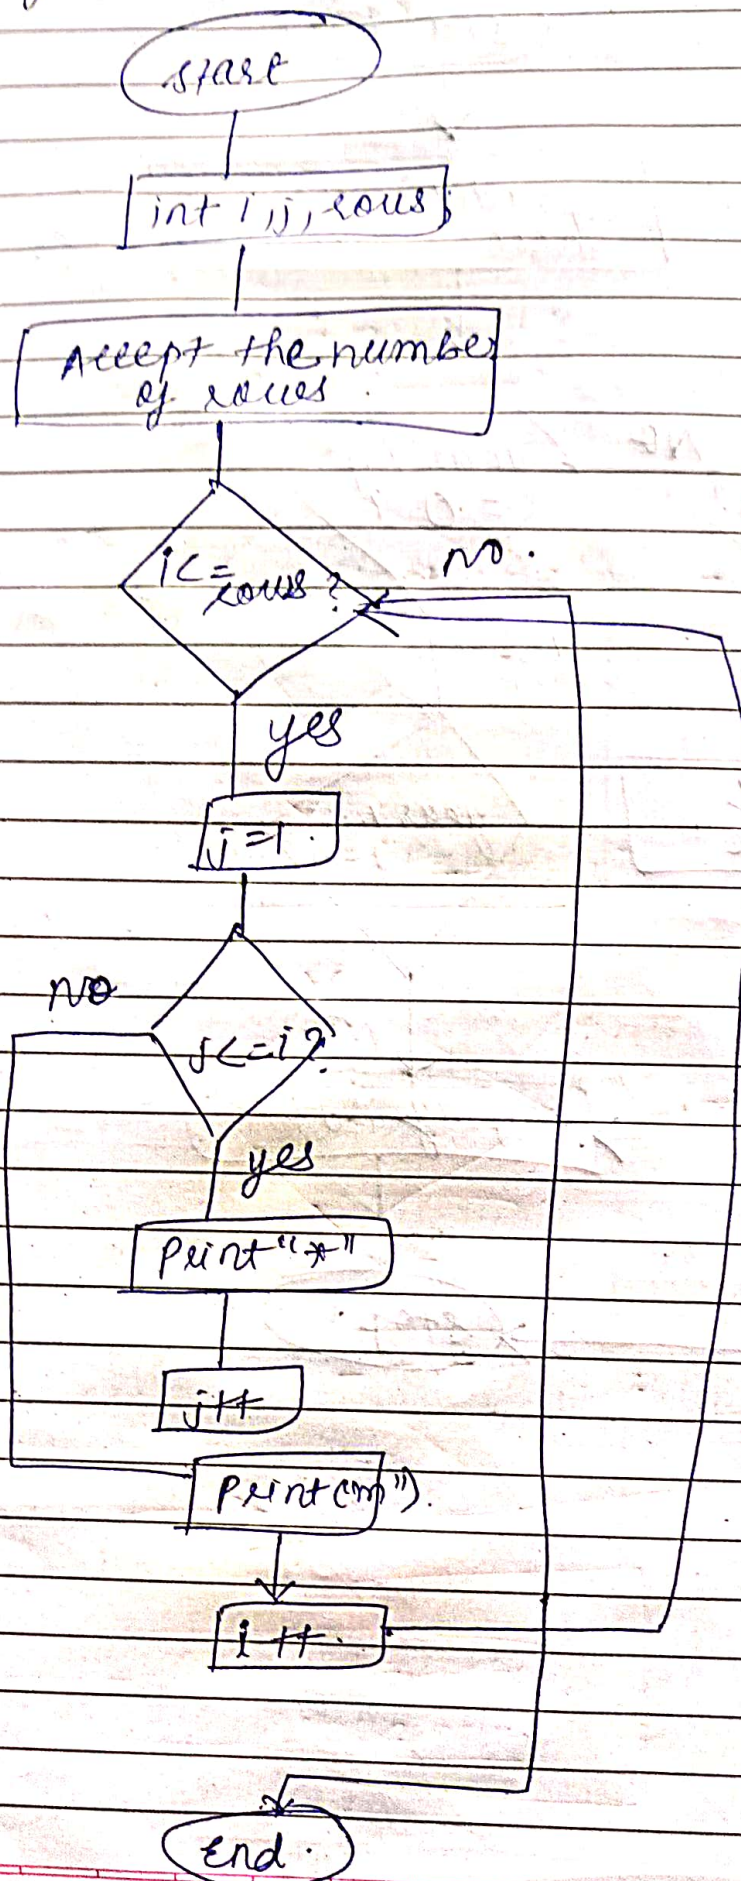 start
int i, j, rows;
Accept the number
of rows.
i<=
rows?
no.
yes
j=1.
NO
j<=i?
yes
Print "*"
j++
Print("\n").
i++.
End.